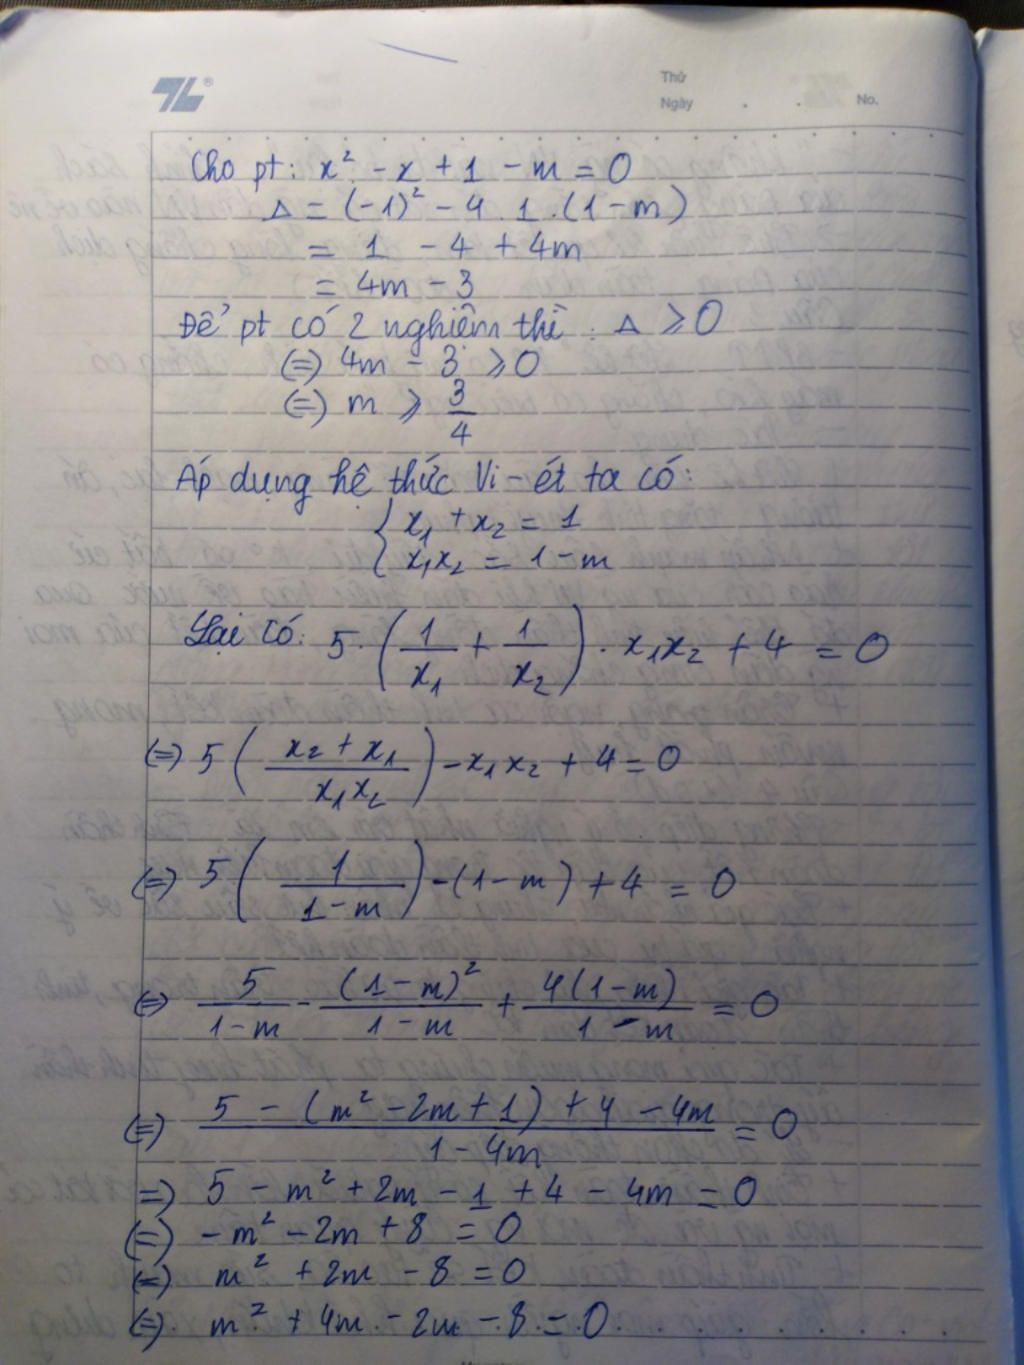 Thứ
Ngày . . No.
Cho pt: x² - x + 1 - m = 0
Δ = (-1)² - 4 . 1 . (1 - m)
= 1 - 4 + 4m
= 4m - 3
Để pt có 2 nghiệm thì : Δ ⩾ 0
(=) 4m - 3 ⩾ 0
(=) m ⩾ 3/4
Áp dụng hệ thức Vi-ét ta có:
{ x₁ + x₂ = 1
{ x₁x₂ = 1 - m
Lại có: 5 . (1/x₁ + 1/x₂) . x₁x₂ + 4 = 0
(=) 5 ((x₂ + x₁)/(x₁x₂)) - x₁x₂ + 4 = 0
(=) 5 (1/(1 - m)) - (1 - m) + 4 = 0
(=) 5/(1 - m) - (1 - m)²/(1 - m) + 4(1 - m)/(1 - m) = 0
(=) (5 - (m² - 2m + 1) + 4 - 4m)/(1 - 4m) = 0
=) 5 - m² + 2m - 1 + 4 - 4m = 0
(=) - m² - 2m + 8 = 0
(=) m² + 2m - 8 = 0
(=) m² + 4m - 2m - 8 = 0